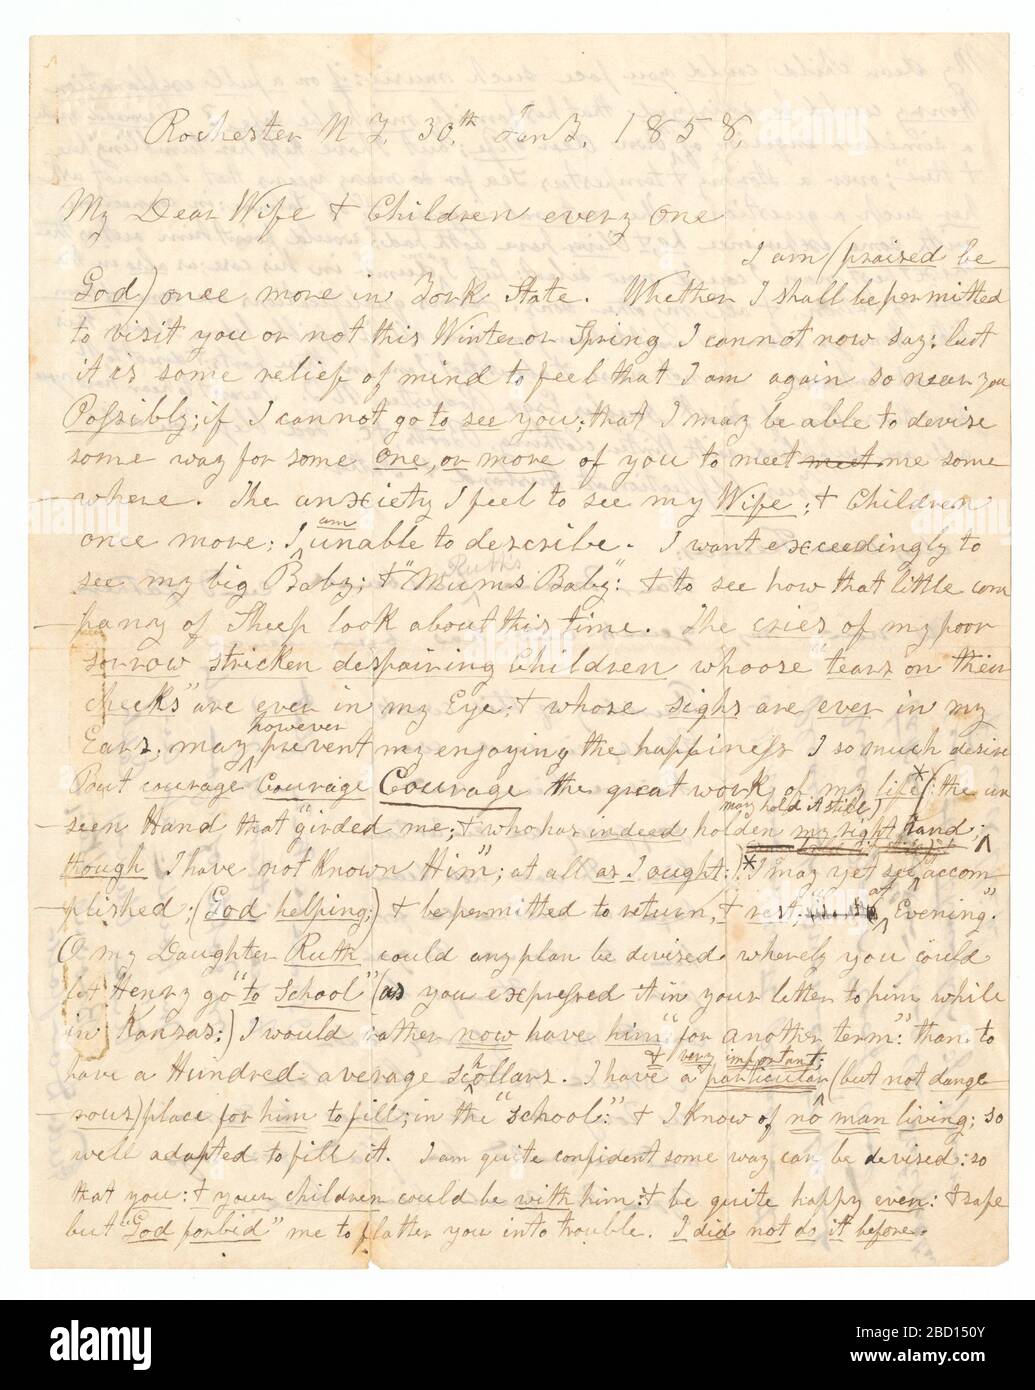 Rochester N Y, 30th Jany, 1858,
My Dear Wife & Children every one
I am (praised be
God) once more in York State. Whether I shall be permitted
to visit you or not this Winter or Spring I cannot now say; but
it is some relief of mind to feel that I am again so near you
Possibly; if I cannot go to see you; that I may be able to devise
some way for some one, or more of you to meet meet me some
where. The anxiety I feel to see my Wife; & Children
once more; I am unable to describe. I want exceedingly to
see my big Baby; & "Ruths Mums Baby": & to see how that little com
pany of Sheep look about this time. The cries of my poor
sorrow stricken despairing Children whoose "tears on their
cheeks" are ever in my Eye; & whose sighs are ever in my
Ears; may however prevent my enjoying the happiness I so much desire
But courage Courage Courage the great work of my life* (the un
seen Hand that "girded me; & who has indeed holden my right hand; may hold it still)
though I have not known Him"; at all as I ought:)* I may yet see accom
plished; (God helping;) & be permitted to return, & rest, at Evening".
O my Daughter Ruth could any plan be devised whereby you could
let Henry go "to School" (as you expressed it in your letter to him while
in Kansas;) I would rather now have him "for another term:" than to
have a Hundred average scholars. I have a particular & very important; (but not dange
rous) place for him to fill; in the "school:" & I know of no man living; so
well adapted to fill it. I am quite confident some way can be devised: so
that you: & your children could be with him: & be quite happy even: & safe
but "God forbid" me to flatter you into trouble. I did not do it before.
alamy
Image ID: 2BD150Y
www.alamy.com